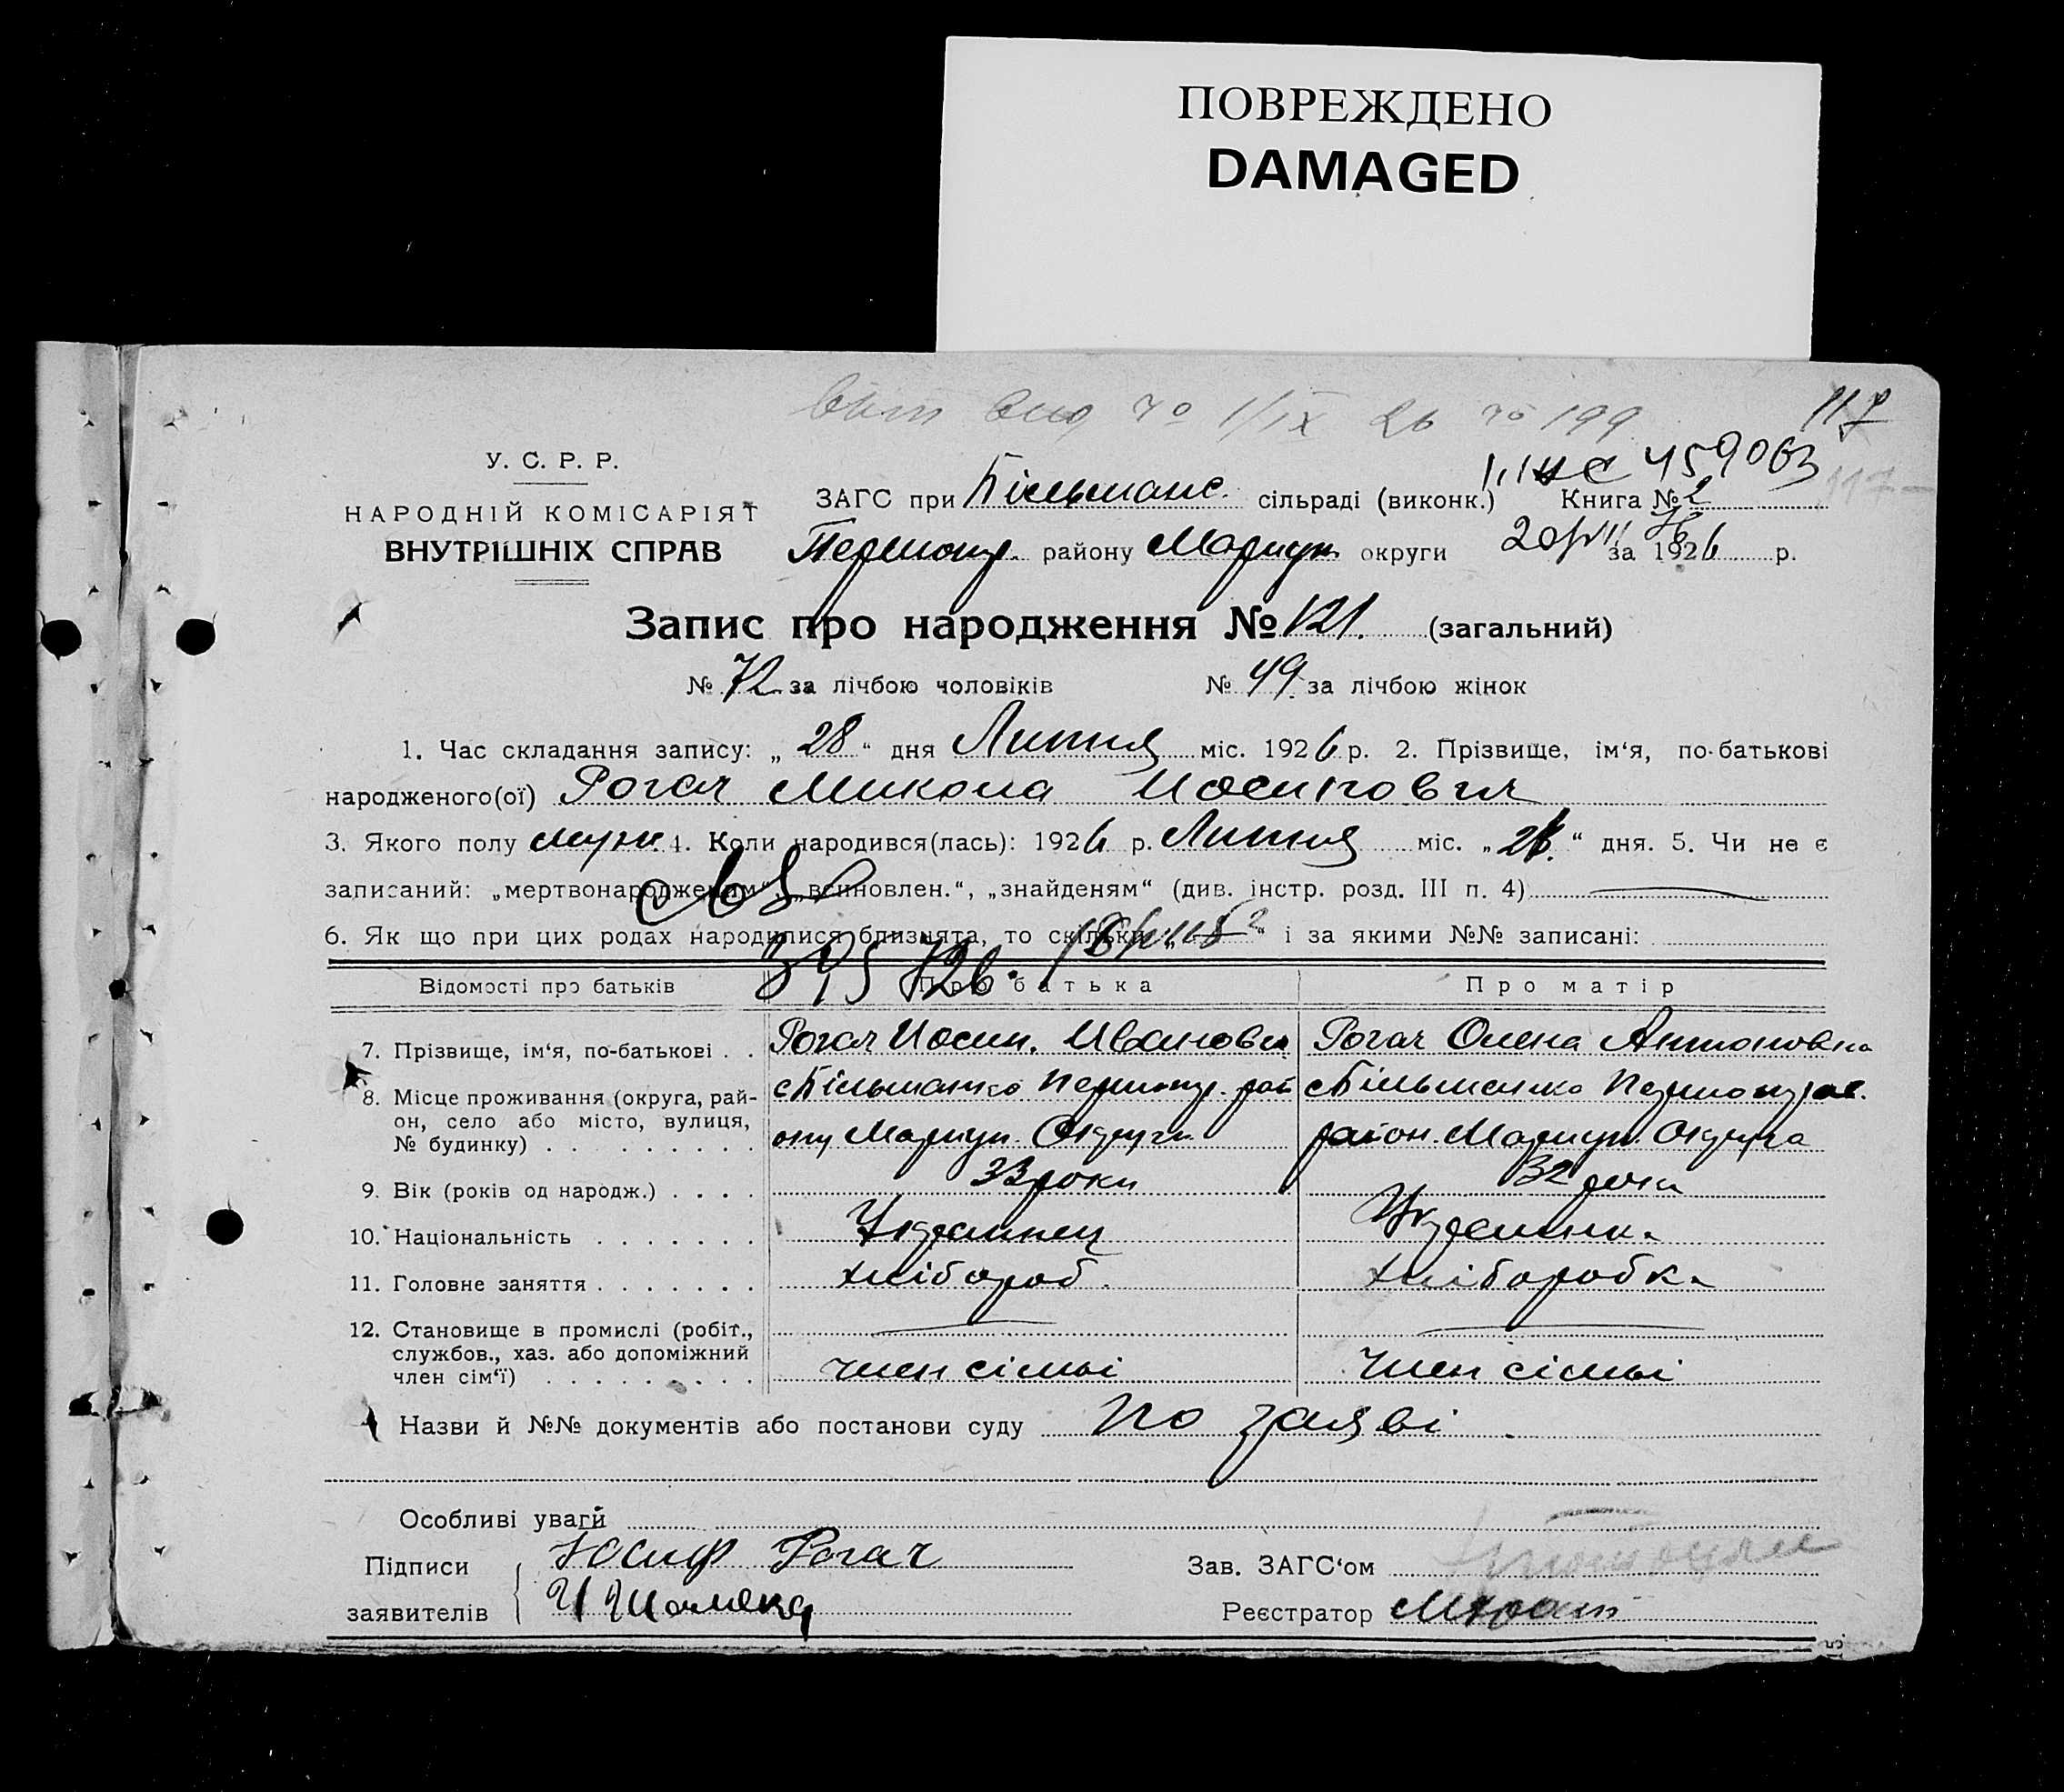 ПОВРЕЖДЕНО
DAMAGED
117
459063
У. С. Р. Р.
НАРОДНІЙ КОМІСАРІЯТ
ВНУТРІШНІХ СПРАВ
ЗАГС при Більманс. сільраді (виконк.) Книга № 2
Першотр. району Маріуп. округи за 1926 р.
Запис про народження № 121. (загальний)
№ 72 за лічбою чоловіків № 49 за лічбою жінок
1. Час складання запису: „ 28 “ дня Липня міс. 1926 р. 2. Прізвище, ім‘я, по-батькові
народженого(ої) Рогач Микола Иосипович
3. Якого полу муж. 4. Коли народився(лась): 1926 р. Липня міс. „ “ дня. 5. Чи не є
записаний: „мертвонародженим“, „всиновлен.“, „знайденям“ (див. інстр. розд. III п. 4)
6. Як що при цих родах народилися близнята, то скільки „ “ і за якими №№ записані:
Відомості про батьків Про батька Про матір
7. Прізвище, ім‘я, по-батькові . . Рогач Иосип. Иванович Рогач Олена Антоновна
8. Місце проживання (округа, рай- с Більманка Першотр. рай с Більманка
он, село або місто, вулиця, ону Маріуп. Округи район. Маріуп. Округа
№ будинку) . . . . . . . . .
9. Вік (років од народж.) . . . . 33 роки 32 роки
10. Національність . . . . . . . Украинец Украинка
11. Головне заняття . . . . . . . хлібороб. хліборобка
12. Становище в промислі (робіт.,
службов., хаз. або допоміжний
член сім‘ї) . . . . . . . . . член сімьі член сімьі
Назви й №№ документів або постанови суду по заяві
Особливі уваги
Підписи Юсиф Рогач Зав. ЗАГС‘ом
заявителів Реєстратор